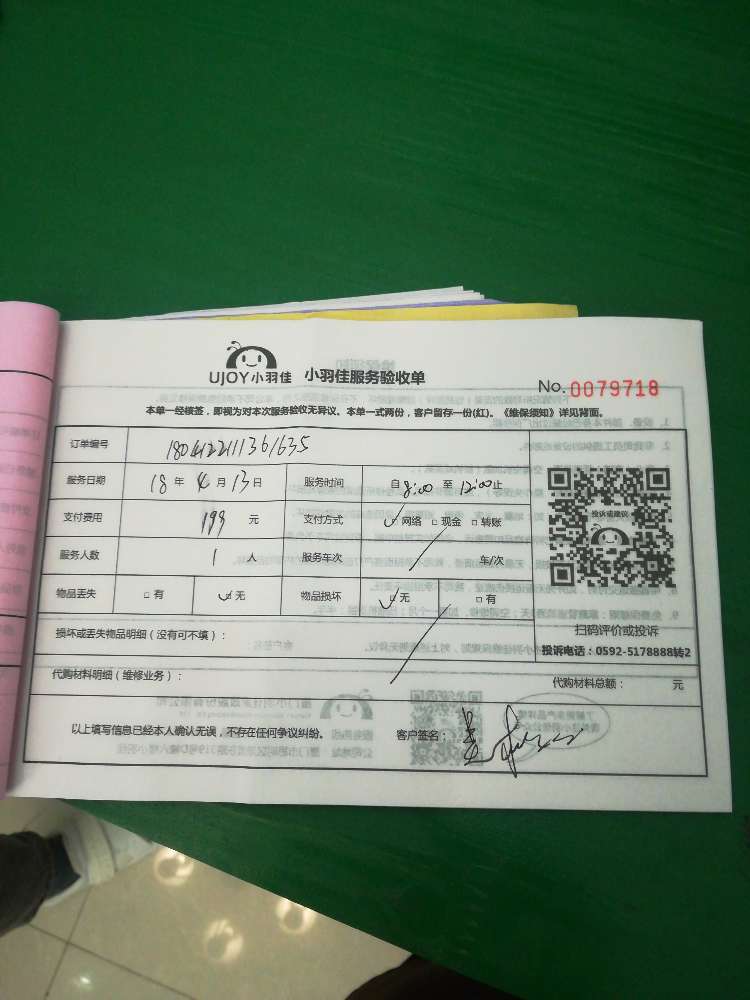 UJOY小羽佳 小羽佳服务验收单 No. 0079718
本单一经核签，即视为对本次服务验收无异议。本单一式两份，客户留存一份(红)。《维保须知》详见背面。
订单编号 1804122111361635
服务日期 18 年 4 月 13 日 服务时间 自 8:00 至 12:00 止
支付费用 199 元 支付方式 ✓ 网络 □ 现金 □ 转账
服务人数 1 人 服务车次 车/次
物品丢失 □ 有 ✓ 无 物品损坏 ✓ 无 □ 有
投诉或建议
扫码评价或投诉
投诉电话：0592-5178888转2
损坏或丢失物品明细（没有可不填）：
代购材料明细（维修业务）： 代购材料总额： 元
以上填写信息已经本人确认无误，不存在任何争议纠纷。 客户签名：